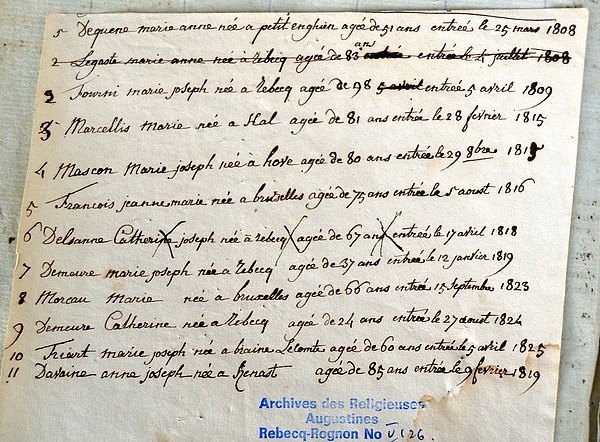 5 Dequene marie anne née a petit enghien agée de 51 ans entrée le 25 mars 1808
2 Legaste marie anne née a rebecq agée de 83 ans entrée le 4 juillet 1808
2 Fourni marie joseph née a Rebecq agée de 98 5 avril entrée 5 avril 1809
3 Marcellis marie née a Hal agée de 81 ans entrée le 28 fevrier 1815
4 Mascon Marie joseph née a hove agée de 80 ans entrée le 29 8bre 1815
5 Francois jeanne marie née a bruxelles agée de 75 ans entrée le 5 aoust 1816
6 Delsanne Catherine joseph née a rebecq agée de 67 ans entrée le 17 avril 1818
7 Demeure marie joseph née a Rebecq agée de 37 ans entrée le 12 janvier 1819
8 Morcau Marie née a bruxelles agée de 66 ans entrée 15 Septembre 1823
9 Demeure Catherine née a Rebecq agée de 24 ans entrée le 27 aoust 1824
10 Friart marie joseph née a braine Lecomte agée de 60 ans entrée le 5 avril 1825
11 Davaine anne joseph née a Henast agée de 85 ans entrée le 9 fevrier 1819
Archives des Religieuses
Augustines
Rebecq-Rognon No V, 26.